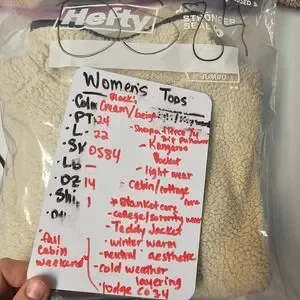 Hefty
STRONGER
SEAL
JUMBO
Women's Tops
Black:
Cream/beige
PT 24
L- 22
SV 0584
LB
OZ 14
1
- sherpa fleece 1/4
zip pullover
- Kangaroo
Pocket
- light wear
- cabin/cottage
core
* Blanket core
- college/sorority wear
- Teddy Jacket
- winter warm
- neutral aesthetic
- cold weather
layering
lodge co34
- fall
cabin
weekend